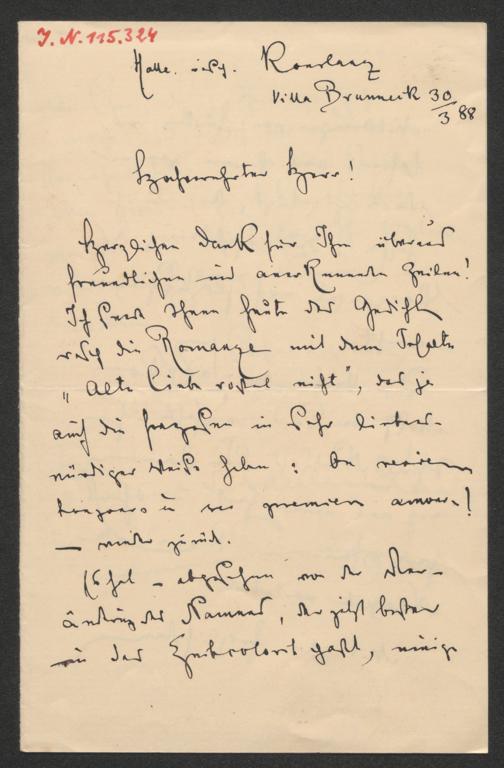 J. N. 115.324
Villa Brunneck 30/3 88
Hochverehrter Herr!
Herzlichen Dank für Ihre überaus
freundlichen und anerkennenden Zeilen!
Ich sende Ihnen heute das Gedicht
die Romanze mit dem Inhalte
"Alte Liebe rostet nicht", das ja
auch die Franzosen in sehr liebens-
würdiger Weise haben: On revient
toujours à ses premiers amours!
— wieder zurück.
Es hat – abgesehen von der Ver-
änderung des Namens, der jetzt besser
in das Zeitcolorit paßt, einige